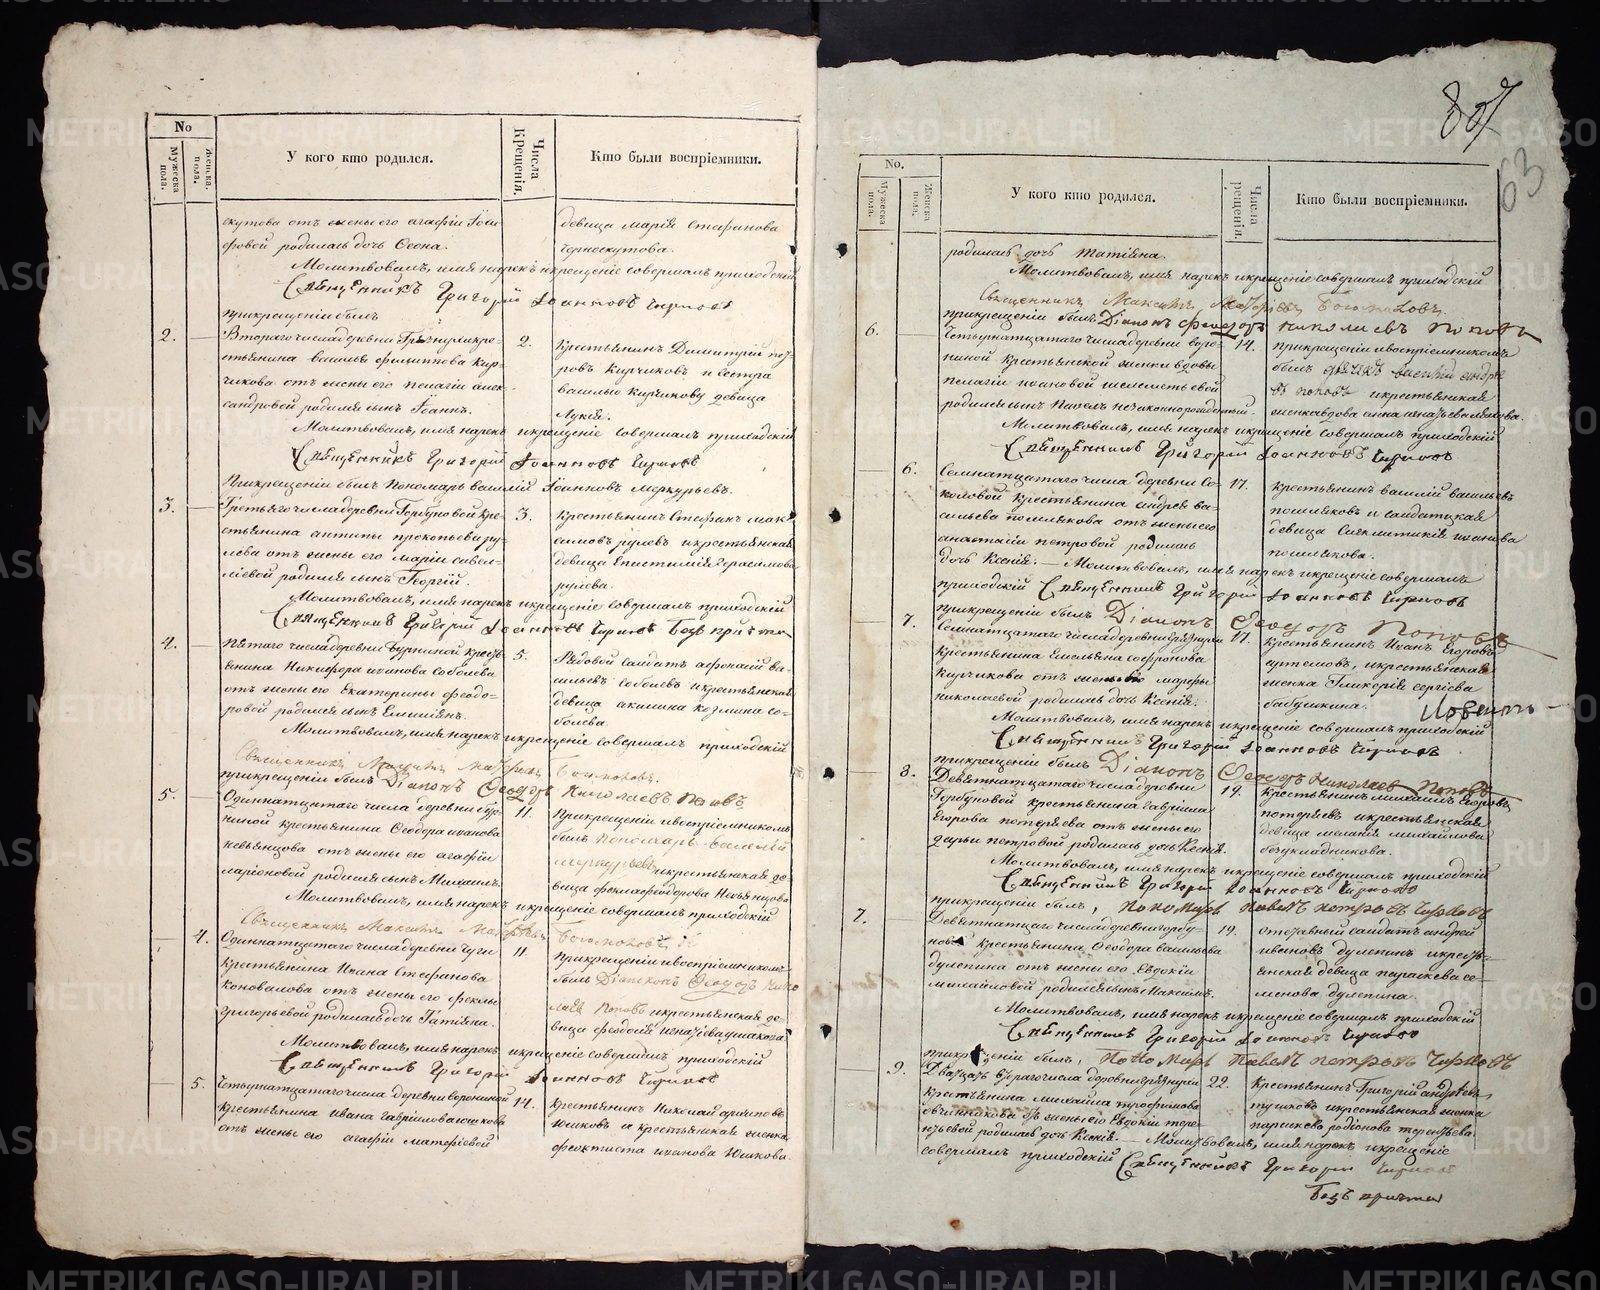 No
Мужеска пола.
Женска пола.
У кого кто родился.
Числа Крещенія.
Кто были воспріемники.
скутова отъ жены его агафіи Іоси
фовой родилась дочь Ѳеона.
девица марія Стефанова
Черноскутова.
Молитвовалъ, имя нарекъ и крещеніе совершалъ приходскій
Священникъ Григорій Іоанновъ
при крещеніи былъ
2.
Втораго числа деревни кре-
стьянина василья филиппова Кир-
чикова отъ жены его пелагіи алек-
сандровой родился сынъ Іоаннъ.
2.
Крестьянинъ Димитрій
ровъ Кирчиковъ и сестра
василью Кирчикову девица
Лукія.
Молитвовалъ, имя нарекъ и крещеніе совершалъ приходскій
Священникъ Григорій Іоанновъ
При крещеніи былъ Пономарь василій Іоанновъ меркурьевъ.
3.
Третьяго числа деревни Горбуновой кре-
стьянина антипы прокопьева ру-
лева отъ жены его маріи савел-
ліевой родился сынъ Георгій.
3.
крестьянинъ Стефанъ мак
симовъ рулевъ и крестьянская
девица Епистимія Герасимова
рулева.
Молитвовалъ, имя нарекъ и крещеніе совершалъ приходскій
Священникъ Григорій Іоанновъ Безъ причта
4.
Пятаго числа деревни Бурниной кресть
янина Никифора иванова соболева
отъ жены его Екатерины феодо-
ровой родился сынъ Емиліянъ.
5.
Рядовой Солдатъ афонасій ва-
сильевъ соболевъ и крестьянская
девица акилина козмина со-
болева.
Молитвовалъ, имя нарекъ и крещеніе совершалъ приходскій
Священникъ Максимъ
при крещеніи былъ Діаконъ Феодоръ Николаевъ Поповъ
5.
Одиннатцатаго числа деревни
ниной крестьянина Феодора иванова
невьянцова отъ жены его агафіи
ларіоновой родился сынъ Михаилъ.
11.
При крещеніи и воспріемникомъ
былъ Пономарь Василій
меркурьевъ и крестьянская де-
вица фекла феодорова Невьянцова
Молитвовалъ, имя нарекъ и крещеніе совершалъ приходскій
Священникъ Максимъ
4.
Одиннатцатаго числа деревни
крестьянина Ивана Стефанова
коновалова отъ жены его феклы
григорьевой родилась дочь Татіяна.
11
при крещеніи и воспріемникомъ
былъ Діаконъ Феодоръ Нико
лаевъ Поповъ и крестьянская де-
вица феодосія игнатіева
Молитвовалъ, имя нарекъ и крещеніе совершалъ приходскій
Священникъ Григорій Іоанновъ
5.
Четырнатцатаго числа деревни ворониной
крестьянина ивана гавріилова юшкова
отъ жены его агафіи матфеевой
14.
крестьянинъ Николай архиповъ
Юшковъ и крестьянская женка
феоктиста иванова Юшкова.
807
63
No.
Мужеска пола.
Женска пола.
У кого кто родился.
Числа Крещенія.
Кто были воспріемники.
родилась дочь Татіяна.
Молитвовалъ, имя нарекъ и крещеніе совершалъ приходскій
Священникъ Максимъ
при крещеніи былъ Діаконъ феодоръ николаевъ поповъ
6.
Четырнатцатаго числа деревни воро-
ниной крестьянской женки вдовы
пелагіи ивановой шелеметьевой
родился сынъ Павелъ незаконнорожденный.
14.
при крещеніи и воспріемникомъ
былъ дьячекъ василій андре
евъ поповъ и крестьянская
женка вдова анна игнатьева
Молитвовалъ, имя нарекъ и крещеніе совершалъ приходскій
Священникъ Григорій Іоанновъ
6.
Семнатцатаго числа деревни Со-
коловой крестьянина андрея ва-
сильева полякова отъ жены его
анастасіи петровой родилась
дочь Ксенія. Молитвовалъ, имя нарекъ и крещеніе совершалъ
17.
крестьянинъ василій васильевъ
поляковъ и солдатская
девица иванова
полякова.
приходскій Священникъ Григорій Іоанновъ
при крещеніи былъ Діаконъ Феодоръ Поповъ
7.
Семнатцатаго числа деревни
крестьянина Емельяна софронова
Кирчикова отъ жены его марфы
николаевой родилась дочь Ксенія.
17.
крестьянинъ Иванъ Егоровъ
артемовъ, и крестьянская
женка Гликерія сергіева
бабушкина.
Молитвовалъ, имя нарекъ и крещеніе совершалъ приходскій
Священникъ Григорій Іоанновъ
при крещеніи былъ Діаконъ Феодоръ Николаевъ Поповъ
8.
Девятнатцатаго числа деревни
Горбуновой крестьянина гавріила
Егорова потеряева отъ жены его
дарьи петровой родилась дочь Ксенія.
19.
крестьянинъ михаилъ Егоровъ
потеряевъ и крестьянская
девица меланія михайлова
безукладникова.
Молитвовалъ, имя нарекъ и крещеніе совершалъ приходскій
Священникъ Григорій Іоанновъ
при крещеніи былъ, Пономарь Павелъ петровъ
7.
Девятнатцаго числа деревни горбу-
новой крестьянина Феодора васильева
дулепина отъ жены его Евдокіи
михайловой родился сынъ Максимъ.
19.
отставный солдатъ андрей
ивановъ дулепинъ и кресть-
янская девица параскева се-
менова дулепина.
Молитвовалъ, имя нарекъ и крещеніе совершалъ приходскій
Священникъ Григорій Іоанновъ
при крещеніи былъ, Пономарь Павелъ петровъ
9.
Дватцать втораго числа деревни
крестьянина михаила трофимова
овчинникова отъ жены его Евдокіи тере-
нтьевой родилась дочь Ксенія. Молитвовалъ, имя нарекъ и крещеніе
22.
крестьянинъ Григорій андреевъ
и крестьянская женка
параскева родіонова терентьева.
совершалъ приходскій Священникъ Григорій
Безъ причта
METRIKI.GASO-URAL.RU